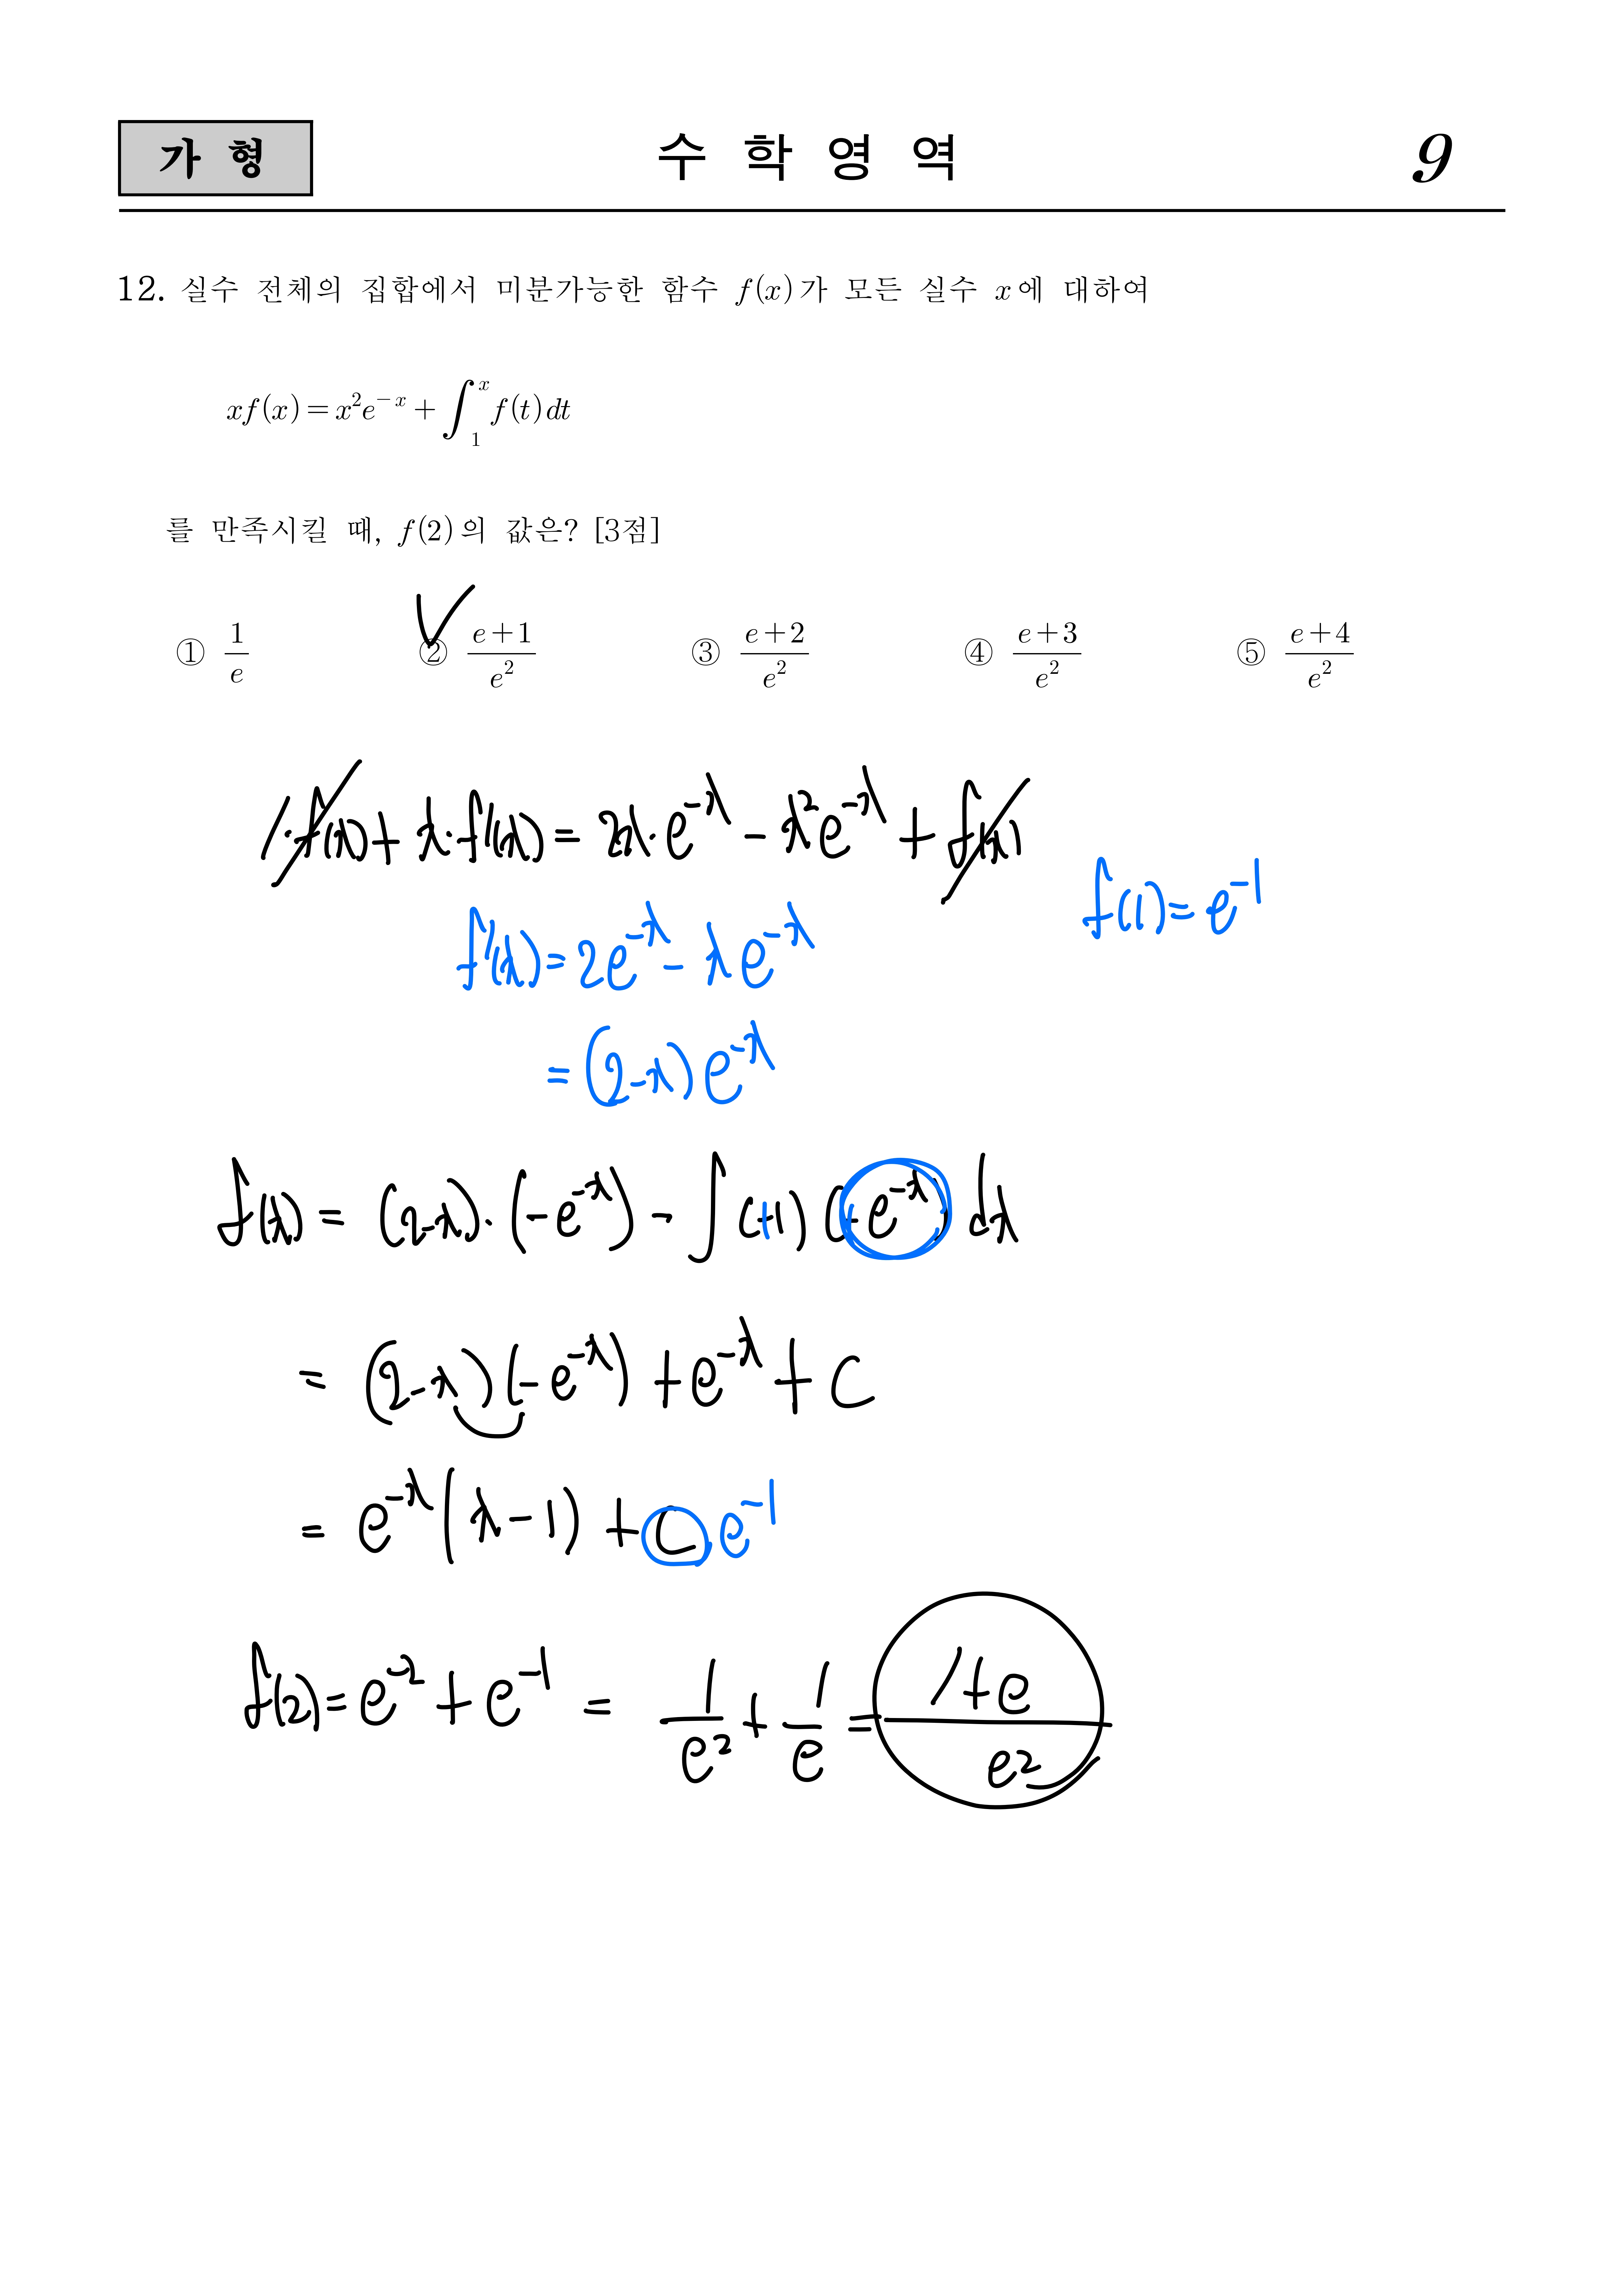 가 형 수 학 영 역 9
12. 실수 전체의 집합에서 미분가능한 함수 f(x)가 모든 실수 x에 대하여
xf(x)=x²e⁻ˣ+∫₁ˣf(t)dt
를 만족시킬 때, f(2)의 값은? [3점]
① 1/e ② (e+1)/e² ③ (e+2)/e² ④ (e+3)/e² ⑤ (e+4)/e²
1·f(x)+x·f'(x)=2x·e⁻ˣ-x²e⁻ˣ+f(x)
f(1)=e⁻¹
f'(x)=2e⁻ˣ-xe⁻ˣ
=(2-x)e⁻ˣ
f(x)=(2-x)·(-e⁻ˣ)-∫(+1)(-e⁻ˣ)dx
=(2-x)(-e⁻ˣ)+e⁻ˣ+C
=e⁻ˣ(x-1)+C e⁻¹
f(2)=e⁻²+e⁻¹=1/e²+1/e=(1+e)/e²